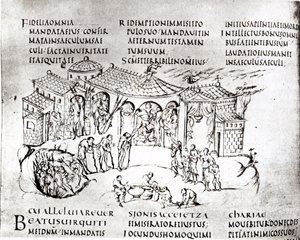 FIDELIAOMNIA
MANDATAEIUSCONFIR
MATAINSAECULUMSAE
CULIFACTAINUERITATE
ETAEQUITATE
REDEMPTIONEMMISITPO
PULOSUOMANDAUITIN
AETERNUMTESTAMEN
TUMSUUM
SCMETTERRIBILENOMEIUS
INITIUSAPIENTIAETIMOR
INTELLECTUSBONUSOMNI
BUSFACIENTIBUSEUM
LAUDATIOEIUSMANET
INSAECULUSAECULI
CXI ALLELUIA REUER
BEATUSUIRQUITI
METDNM INMANDATIS
SIONIS AGGEI ET ZA
IOCUNDUSHOMOQUI
CHARIAE